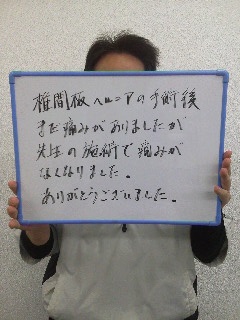 椎間板ヘルニアの手術後
まだ痛みがありましたが
先生の施術で痛みが
なくなりました。
ありがとうございました。